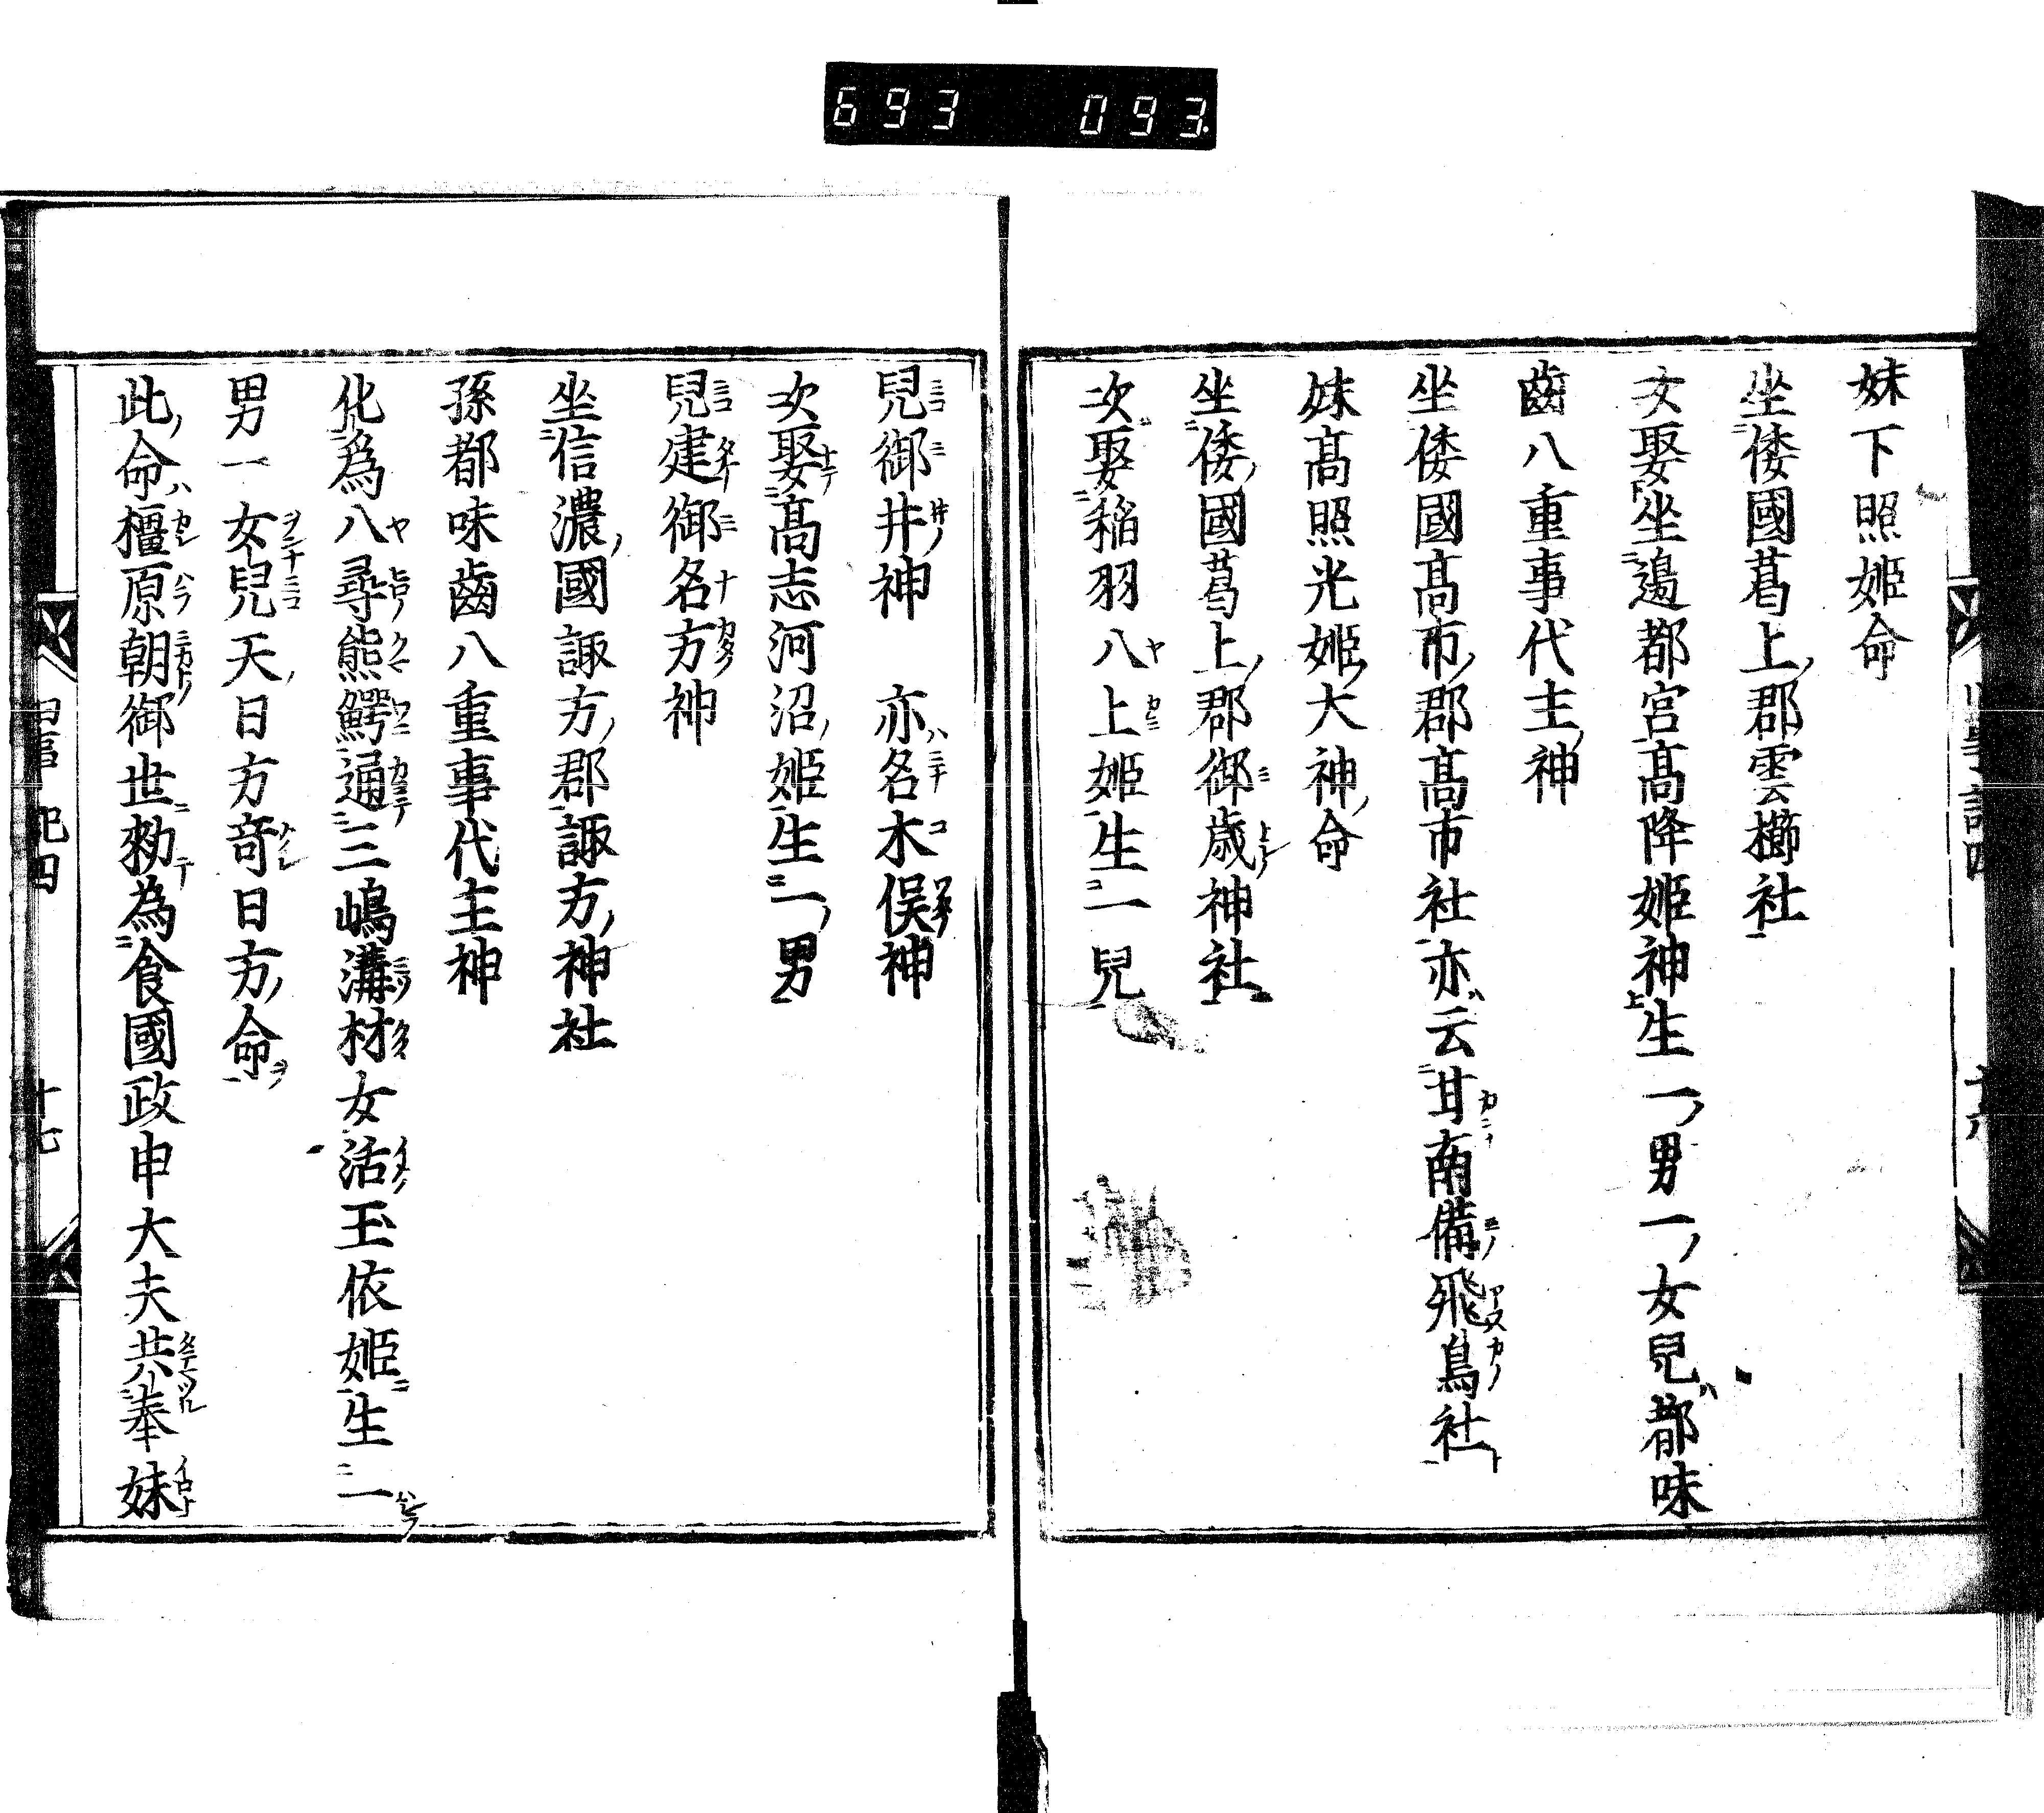 693 093
妹下照姫命
坐倭國葛上郡雲櫛社
次娶坐邉都宮髙降姫神生一男一女兒都味
齒八重事代主神
坐倭國髙市郡髙市社亦云甘南備飛鳥社
妹髙照光姫大神命
坐倭國葛上郡御歳神社
次娶稲羽八上姫生一兒
兒御井神 亦名木俣神
次娶髙志河沼姫生一男
兒建御名方神
坐信濃國諏方郡諏方神社
孫都味齒八重事代主神
化為八尋熊鰐通三嶋溝杭女活玉依姫生一
男一女兒天日方竒日方命
此命橿原朝御世勅為食國政申大夫共奉妹